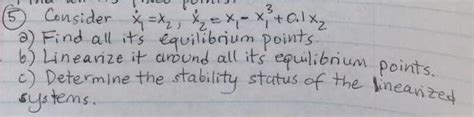 ⑤ Consider ẋ₁ = x₂, ẋ₂ = x₁ - x₁³ + 0.1x₂
a) Find all its equilibrium points.
b) Linearize it around all its equilibrium points.
c) Determine the stability status of the linearized
systems.